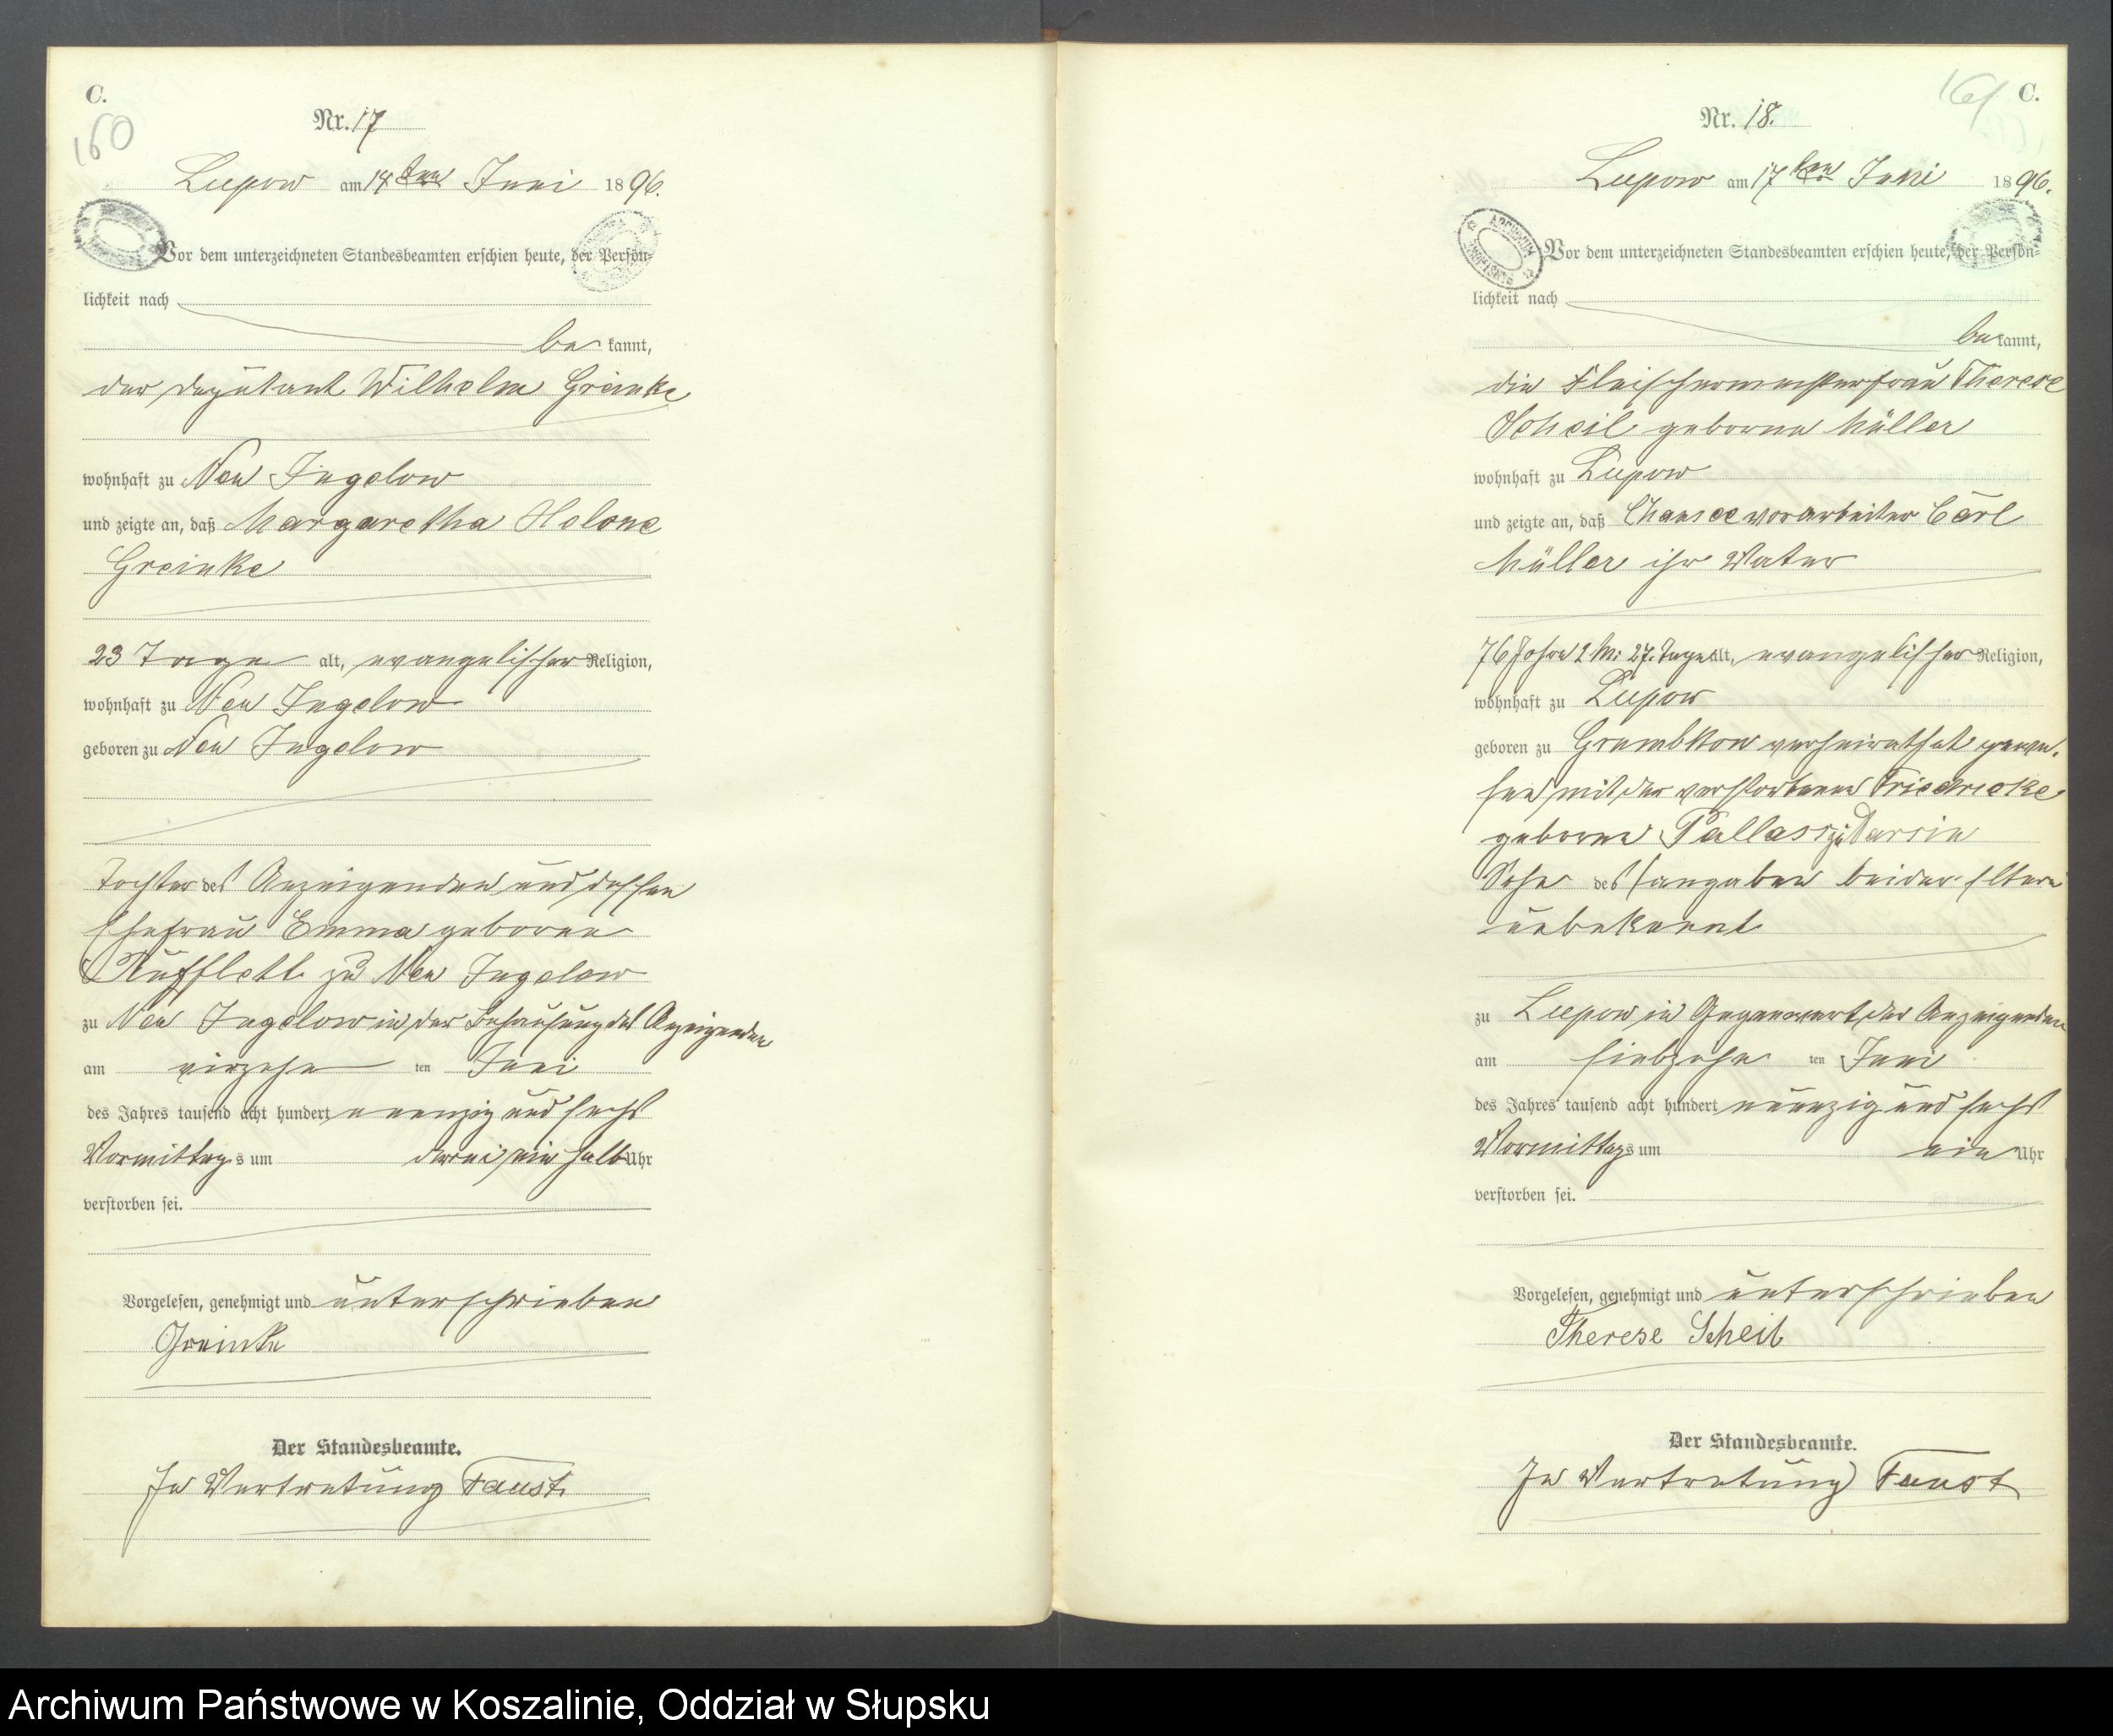 C.
160
Nr. 17
Lupow am 14ten Juni 1896.
Vor dem unterzeichneten Standesbeamten erschien heute, der Persön-
lichkeit nach
bekannt,
der Deputant Wilhelm Greinke
wohnhaft zu Neu Jugelow
und zeigte an, daß Margaretha Helene
Greinke
23 Tage alt, evangelischer Religion,
wohnhaft zu Neu Jugelow
geboren zu Neu Jugelow
Tochter des Anzeigenden und dessen
Ehefrau Emma geborene
Rufflett zu Neu Jugelow
zu Neu Jugelow in der Behausung des Anzeigenden
am vierzehn ten Juni
des Jahres tausend acht hundert neunzig und sechs
Vormittags um drei ein halb Uhr
verstorben sei.
Vorgelesen, genehmigt und unterschrieben
Greinke
Der Standesbeamte.
In Vertretung Faust.
161 C.
Nr. 18.
Lupow am 17ten Juni 1896.
Vor dem unterzeichneten Standesbeamten erschien heute, der Persön-
lichkeit nach
bekannt,
die Fleischermeisterfrau Therese
Scheil geborne Müller
wohnhaft zu Lupow
und zeigte an, daß Chausseevorarbeiter Carl
Müller ihr Vater
76 Jahre 2 M. 27. Tage alt, evangelischer Religion,
wohnhaft zu Lupow
geboren zu Grumbkow verheirathet gewe-
sen mit der verstorbenen Friedricke
geborne Pallas zu Darsin
Sohn des (angaben beider Eltern
unbekannt
zu Lupow in Gegenwart der Anzeigenden
am siebzehn ten Juni
des Jahres tausend acht hundert neunzig und sechs
Vormittags um ein Uhr
verstorben sei.
Vorgelesen, genehmigt und unterschrieben
Therese Scheil
Der Standesbeamte.
In Vertretung Faust
Archiwum Państwowe w Koszalinie, Oddział w Słupsku